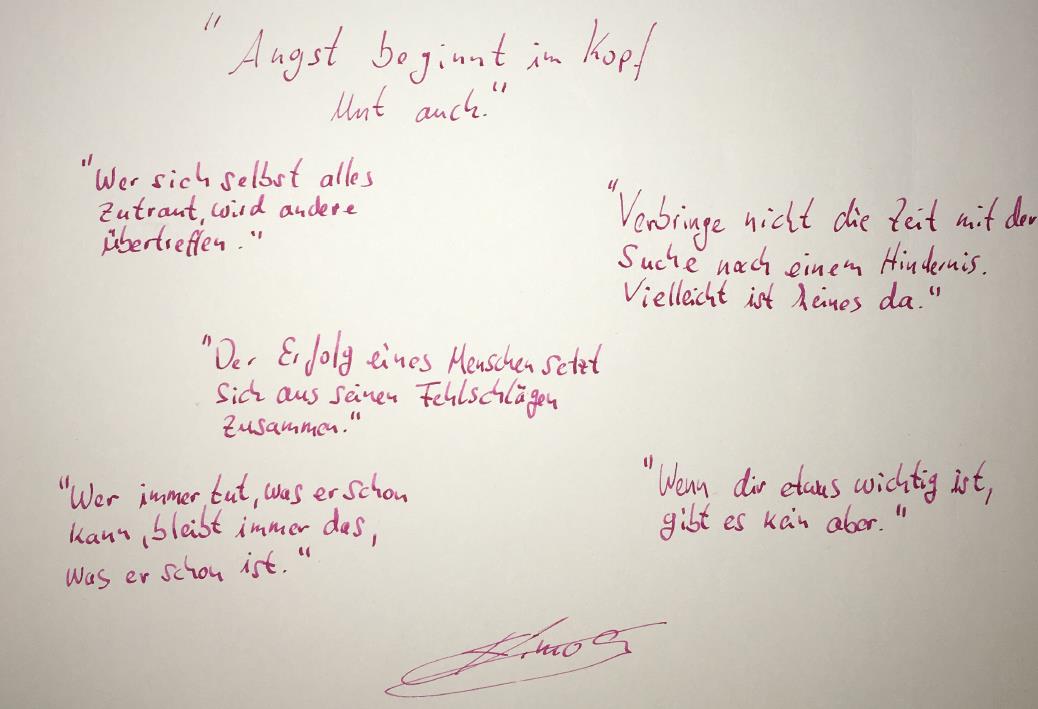 "Angst beginnt im Kopf
Mut auch."
"Wer sich selbst alles
zutraut, wird andere
übertreffen."
"Verbringe nicht die Zeit mit der
Suche nach einem Hindernis.
Vielleicht ist keines da."
"Der Erfolg eines Menschen setzt
sich aus seinen Fehlschlägen
zusammen."
"Wer immer tut, was er schon
kann, bleibt immer das,
was er schon ist."
"Wenn dir etwas wichtig ist,
gibt es kein aber."